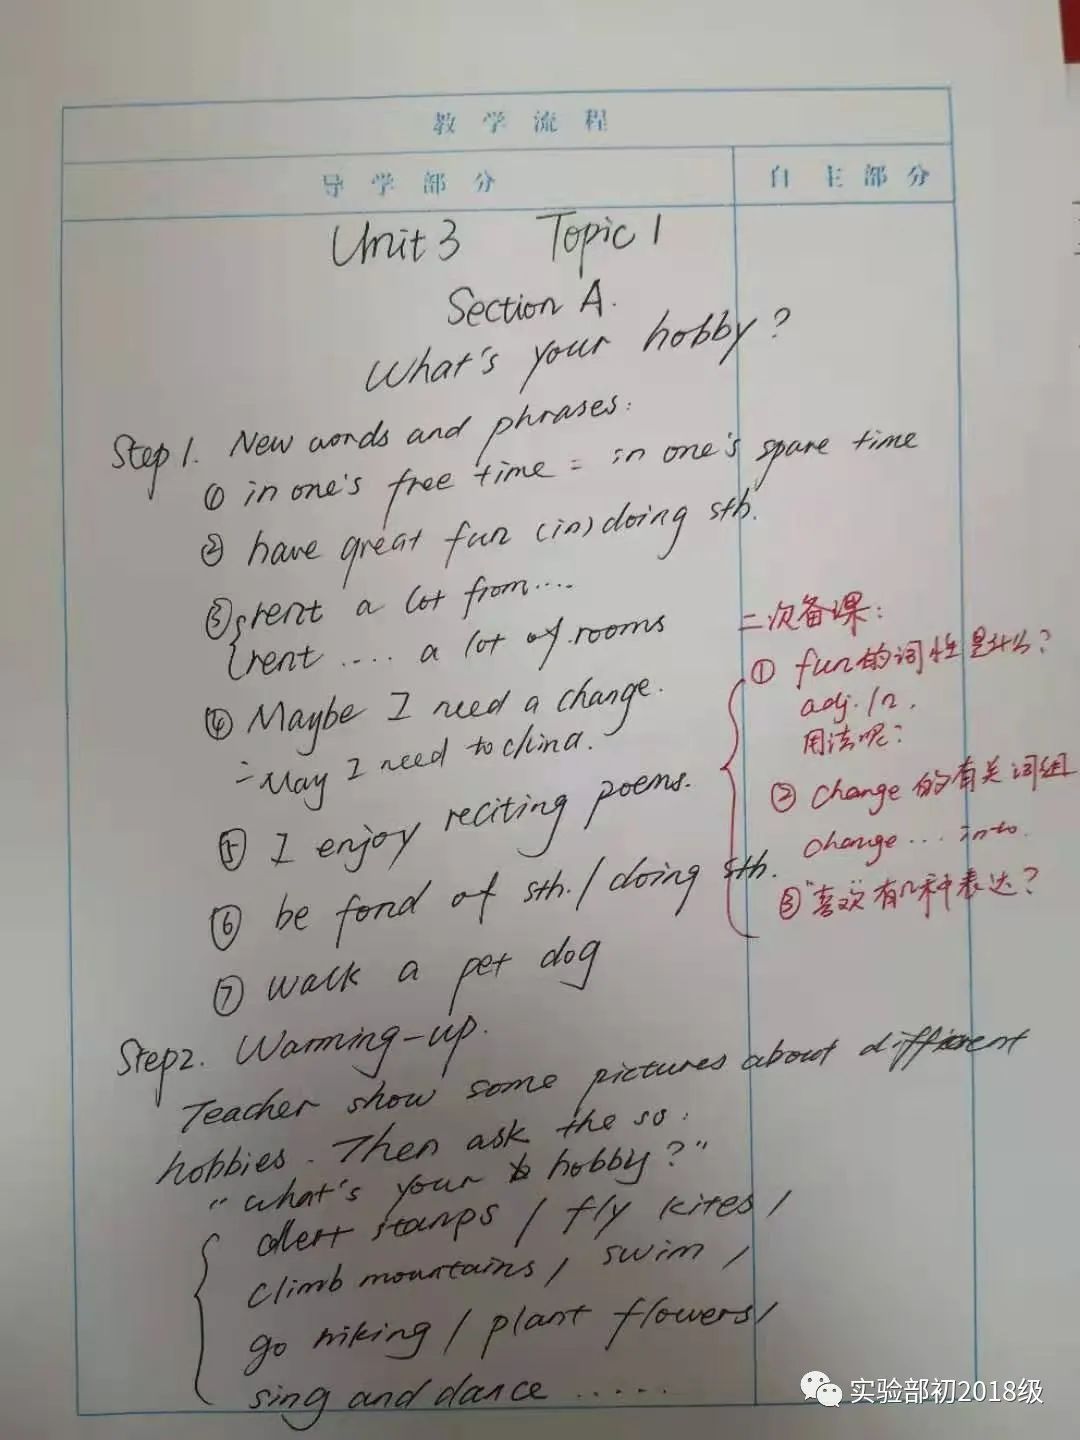 教学流程
导学部分 自主部分
Unit 3 Topic 1
Section A.
What's your hobby?
Step 1. New words and phrases:
① in one's free time = in one's spare time
② have great fun (in) doing sth.
③ rent a lot from....
rent .... a lot of rooms
④ Maybe I need a change.
= May I need to china.
⑤ I enjoy reciting poems.
⑥ be fond of sth. / doing sth.
⑦ walk a pet dog
二次备课:
① fun的词性是什么?
adj. / n.
用法呢?
② change的有关词组
change ... into.
③ "喜欢"有几种表达?
Step 2. Warming-up.
Teacher show some pictures about different
hobbies. Then ask the so:
"what's your hobby?"
stamps / fly kites /
climb mountains / swim /
go hiking / plant flowers /
sing and dance .....
实验部初2018级